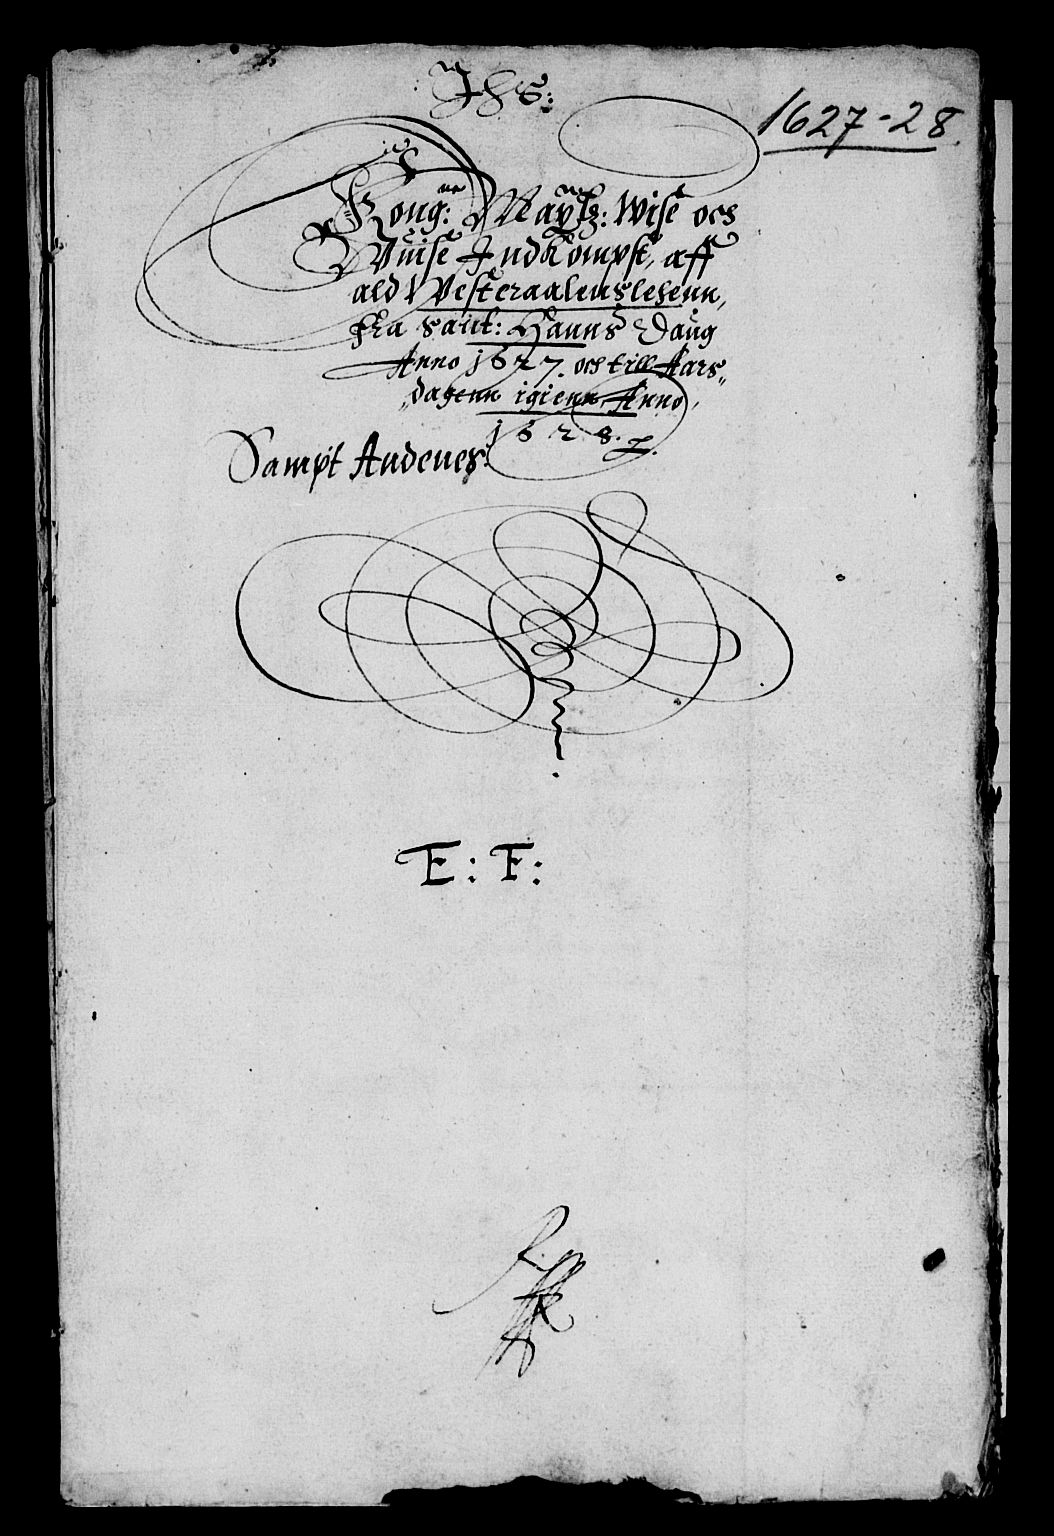 IHS:
1627-28.
Kong: Maÿtz: Wise och
Wuise Indkompst, aff
ald Westeraalenslehenn,
fra Sanct: Hanns Daug
Anno 1627. och till Aars„
„dagenn igienn Anno,
1628.
Sampt Andenes:
E: F: